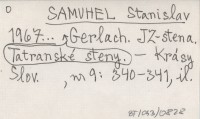 O
SAMUHEL Stanislav
1967... „Gerlach. JZ-stena.
Tatranské steny. — Krásy
Slov. , nr 9: 340-341, il.